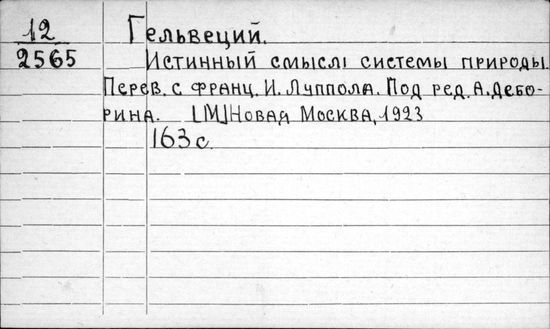 12 Гельвеций.
2565 Истинный смыслı системы природы.
Перев. с франц. И. Луппола. Под ред. А. Дебо-
рина. [М] Новая Москва, 1923
163 с.